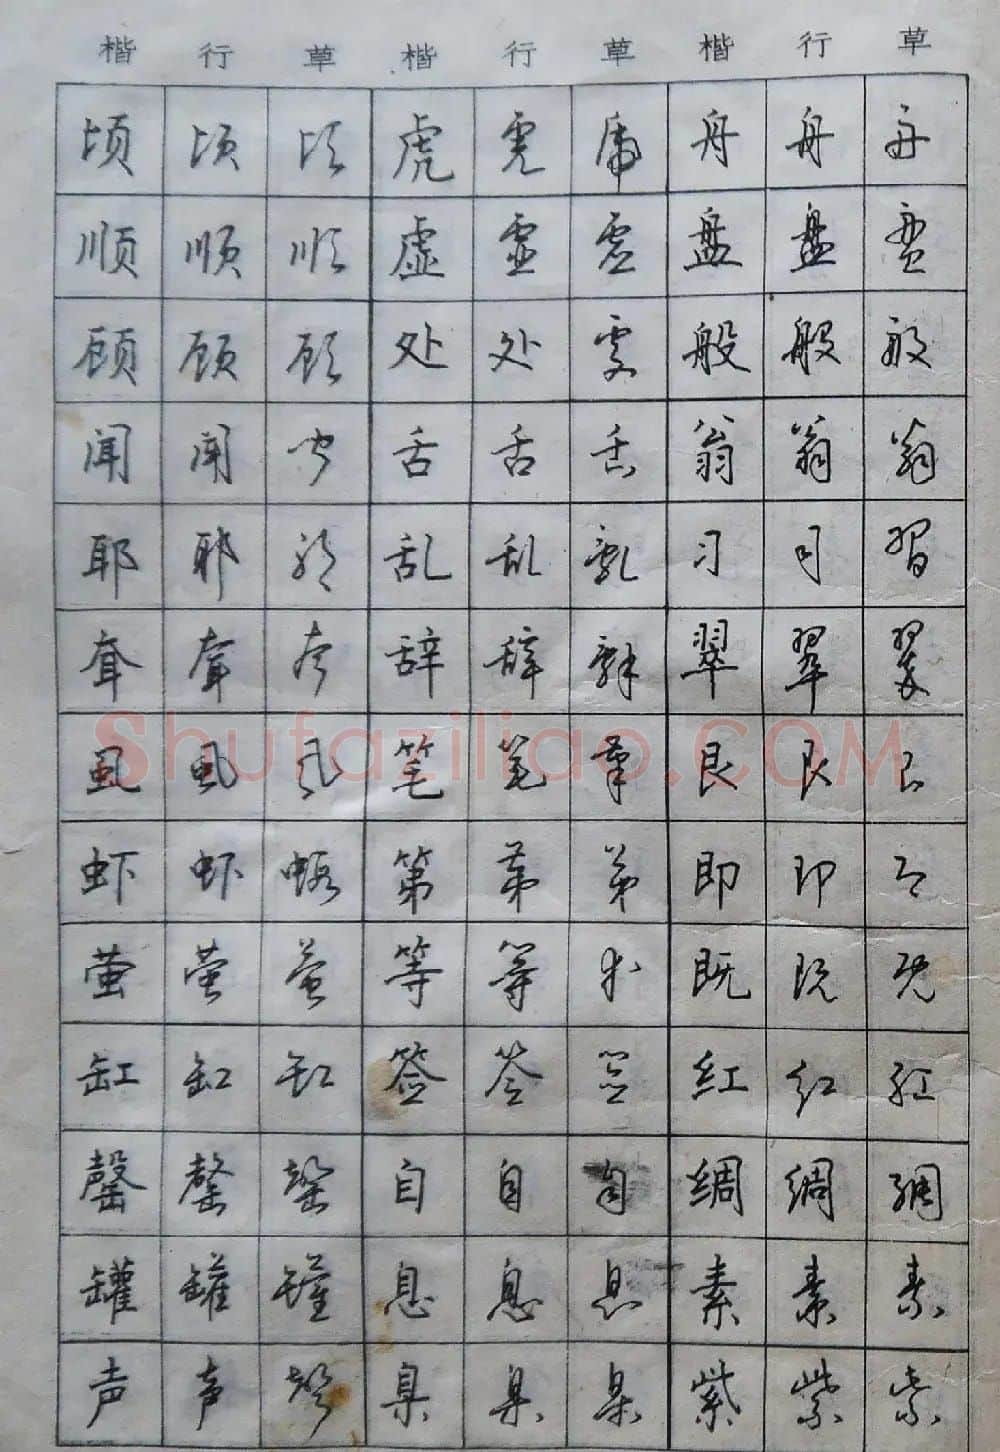 楷 行 草 楷 行 草 楷 行 草
顷 顷 顷 虎 虎 虎 舟 舟 舟
顺 顺 顺 虚 虚 虚 盘 盘 盘
顾 顾 顾 处 处 處 般 般 般
闻 闻 闻 舌 舌 舌 翁 翁 翁
耶 耶 耶 乱 乱 亂 习 习 習
耷 耷 耷 辞 辞 辭 翠 翠 翠
虱 虱 虱 笔 笔 筆 艮 艮 艮
虾 虾 蝦 第 第 第 即 即 即
萤 萤 萤 等 等 等 既 既 既
缸 缸 缸 签 签 签 红 红 红
罄 罄 罄 自 自 自 绸 绸 绸
罐 罐 罐 息 息 息 素 素 素
声 声 聲 臬 臬 臬 紫 紫 紫
Shufaziliao.COM